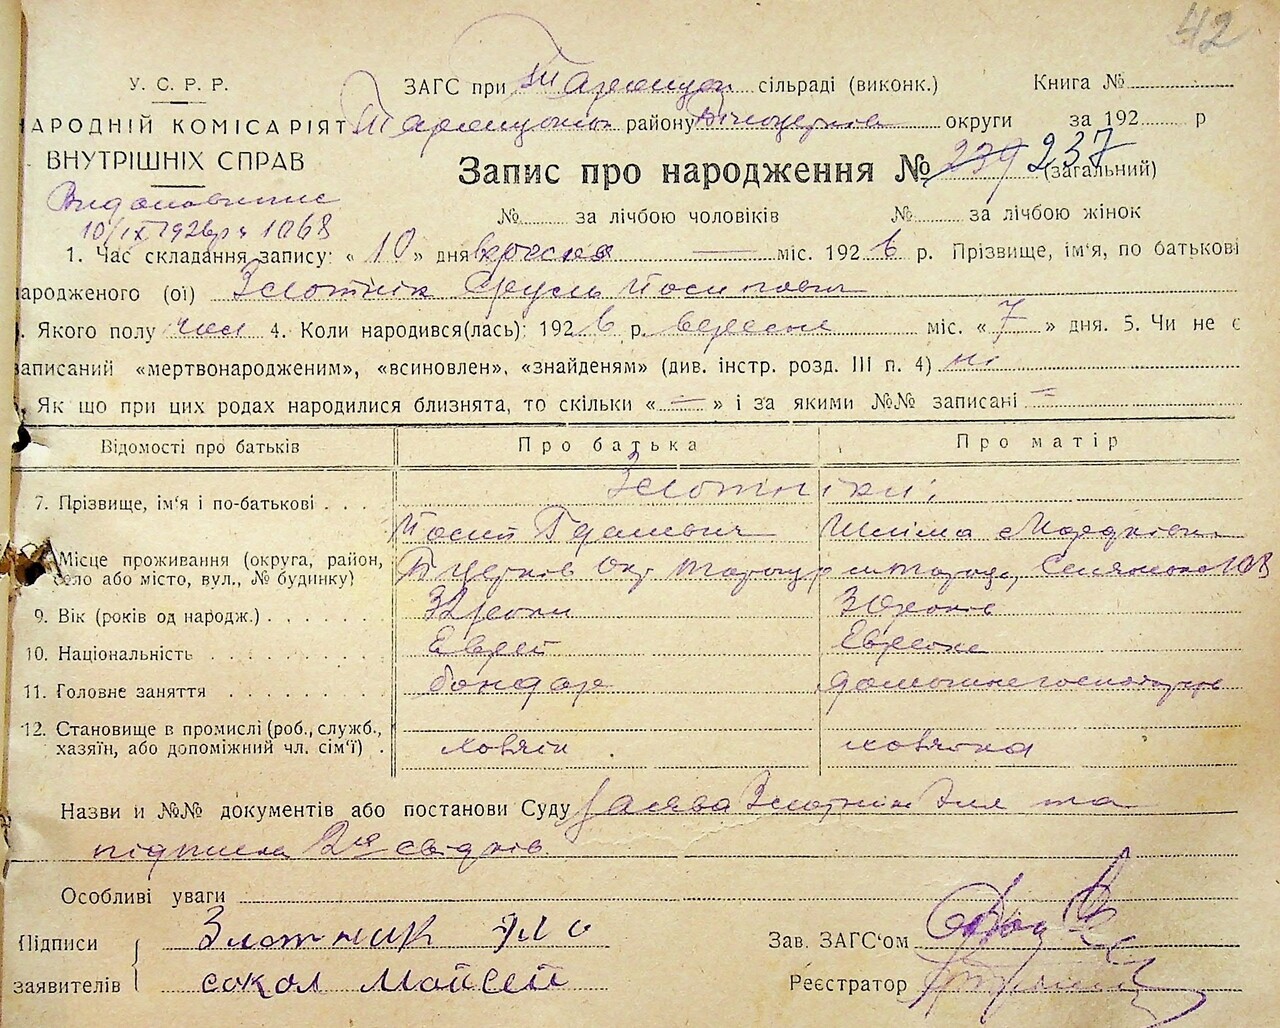 42
У. С. Р. Р.
ЗАГС при Таращан. сільраді (виконк.) Книга №
АРОДНІЙ КОМІСАРІЯТ Таращанськ району Білоцерків округи за 192 р
ВНУТРІШНІХ СПРАВ
Запис про народження № 239 237 (загальний)
10/IX 1926 р ч 1068
№ за лічбою чоловіків № за лічбою жінок
1. Час складання запису: « 10 » дня вересня — міс. 1926 р. Прізвище, ім'я, по батькові
ародженого (ої) Золотнік Сруль Йосипович
. Якого полу чол 4. Коли народився(лась): 1926 р. вересня міс. « 7 » дня. 5. Чи не є
записаний «мертвонародженим», «всиновлен», «знайденям» (див. інстр. розд. III п. 4) ні
Як що при цих родах народилися близнята, то скільки « — » і за якими №№ записані —
Відомості про батьків Про батька Про матір
Золотніки:
7. Прізвище, ім'я і по-батькові
Йосип Шліма Мордківн.
Місце проживання (округа, район,
село або місто, вул., № будинку) Б Церків Окр Таращ р м Тараща, Селянська 108
9. Вік (років од народж.) 32 роки 30 років
10. Національність Єврей Єврейка
11. Головне заняття бондар домашнє господарств
12. Становище в промислі (роб., служб.,
хазяїн, або допоміжний чл. сім'ї) хазяїн хазяйка
Назви и №№ документів або постанови Суду Заява Золотнік Эля та
підписка 2х свідків
Особливі уваги
Підписи Злотник Эло Зав. ЗАГС'ом
заявителів сокол Мойсей Реєстратор